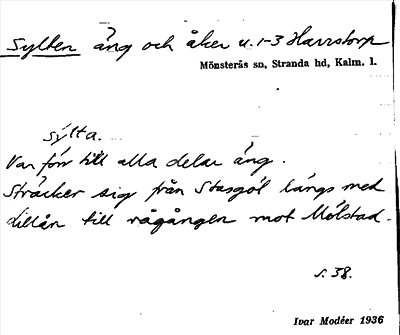 Sylten äng och åker u. 1-3 Harrstorp
Mönsterås sn, Stranda hd, Kalm. l.
sýlta.
Var förr till alla delar äng.
Sträcker sig från Stasgöl längs med
Lillån till rågången mot Mölstad.
s. 38.
Ivar Modéer 1936